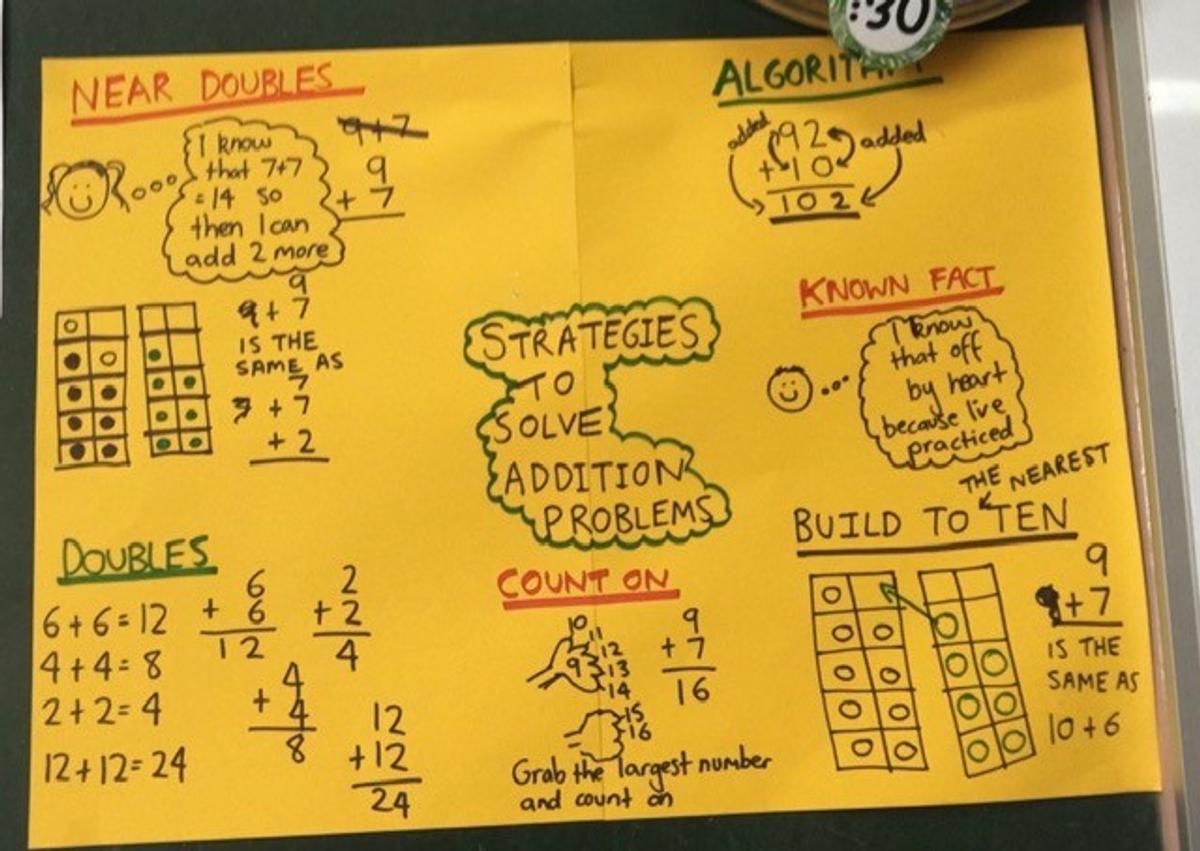 :30
NEAR DOUBLES
I know
that 7+7
=14 so
then I can
add 2 more
9+7
9
+ 7
9
9+ 7
IS THE
SAME AS
7
+ 7
+ 2
ALGORITHM
added 92 added
+10
102
KNOWN FACT
I know
that off
by heart
because I've
practiced
STRATEGIES
TO
SOLVE
ADDITION
PROBLEMS
DOUBLES
6+6=12
4+4=8
2+2=4
12+12=24
6
+ 6
12
2
+ 2
4
4
+ 4
8
12
+12
24
COUNT ON
10
11
12
9 13
14
15
16
9
+ 7
16
Grab the largest number
and count on
THE NEAREST
BUILD TO TEN
9
+7
IS THE
SAME AS
10+6